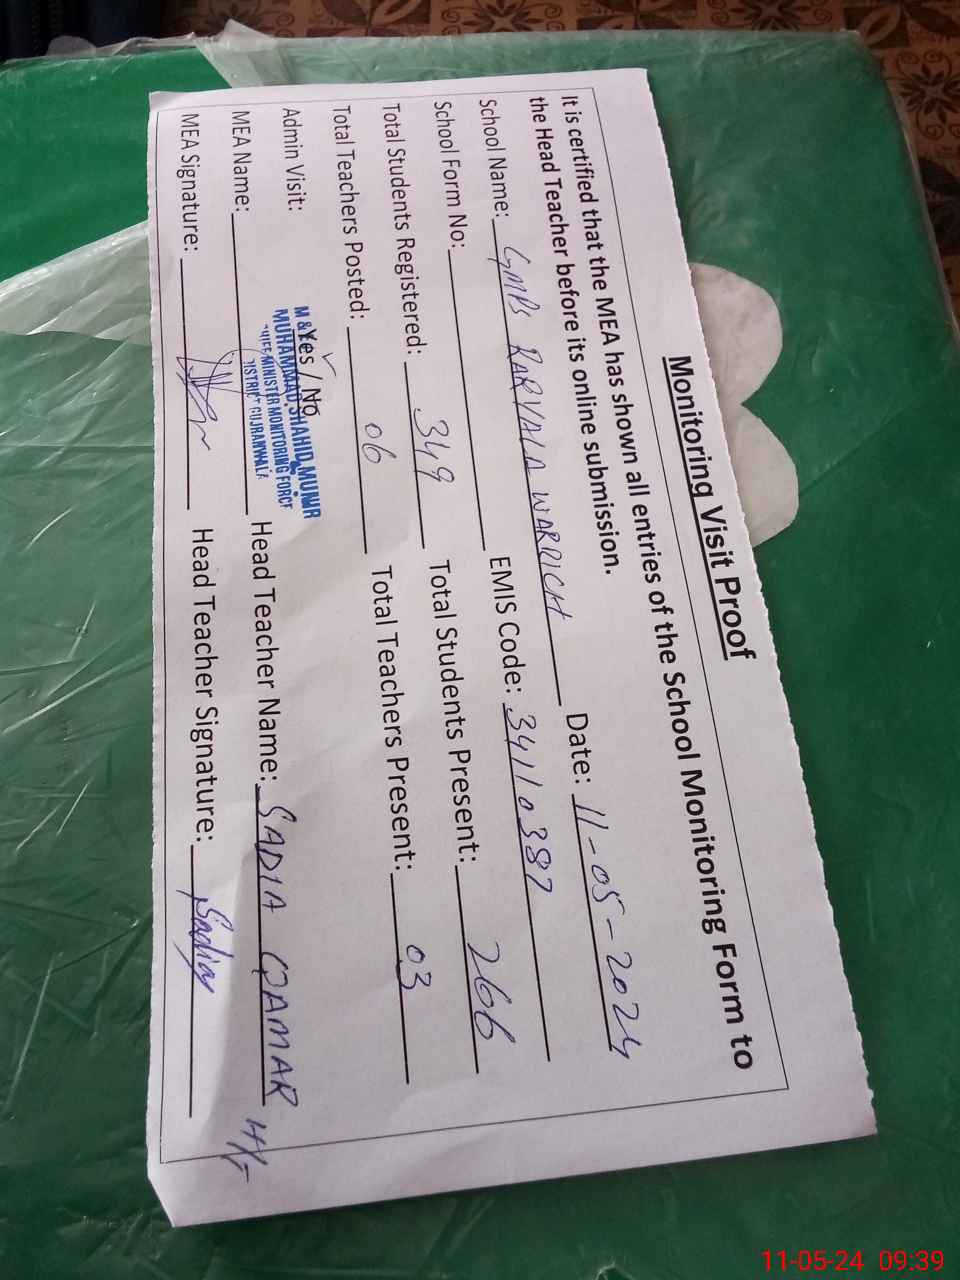 Monitoring Visit Proof
It is certified that the MEA has shown all entries of the School Monitoring Form to
the Head Teacher before its online submission.
School Name: GMPS RARYALA WARRICH Date: 11-05-2024
School Form No: EMIS Code: 34110387
Total Students Registered: 349 Total Students Present: 266
Total Teachers Posted: 06 Total Teachers Present: 03
Admin Visit: Yes / No
M &
MUHAMMAD SHAHID MUNIR
CHIEF MINISTER MONITORING FORCE
DISTRICT GUJRANWALA
MEA Name: Head Teacher Name: SADIA QAMAR
MEA Signature: Head Teacher Signature: Sadia
11-05-24 09:39